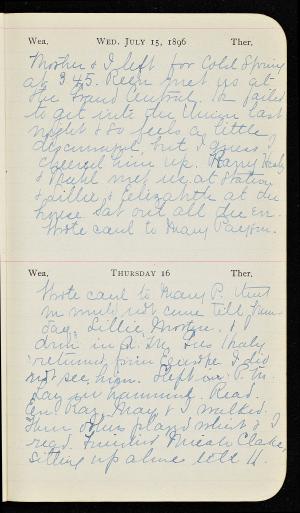 Wea. WED. JULY 15, 1896 Ther.
Mother & I left for Cold Spring
at 3.45. met us at
the Grand Central. He failed
to get into the Union last
night & so feels a little
but I guess I
cheered him up. Harry
& met us at station
& Lillie & Elizabeth at the
house. Sat out all the eve.
Wrote card to Mary Payson.
Wea. THURSDAY 16 Ther.
Wrote card to Mary P. that
would not come till
Lillie, Mother & I
drove in A.M.
returned from Europe. I did
not see him. Slept in P.M.
Lay in hammock. Read.
Eve. Ray, May & I walked.
Then others played whist & I
read. Finished Micah Clarke,
sitting up alone till 11.